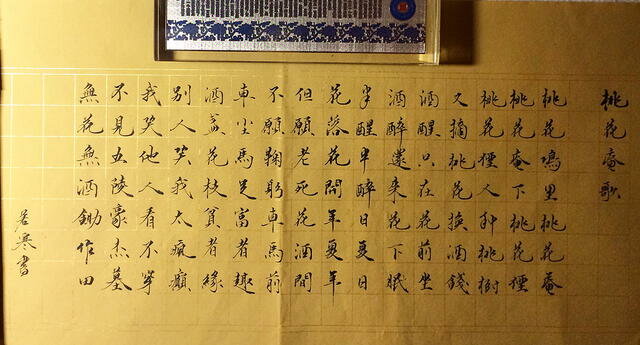 桃花庵歌
桃花塢里桃花庵
桃花庵下桃花僊
桃花僊人种桃樹
又摘桃花換酒錢
酒醒只在花前坐
酒醉還來花下眠
半醒半醉日复日
花落花開年复年
但願老死花酒間
不願鞠躬車馬前
車塵馬足富者趣
酒盞花枝貧者緣
別人笑我太瘋癲
我笑他人看不穿
不見五陵豪杰墓
無花無酒鋤作田
若寒書